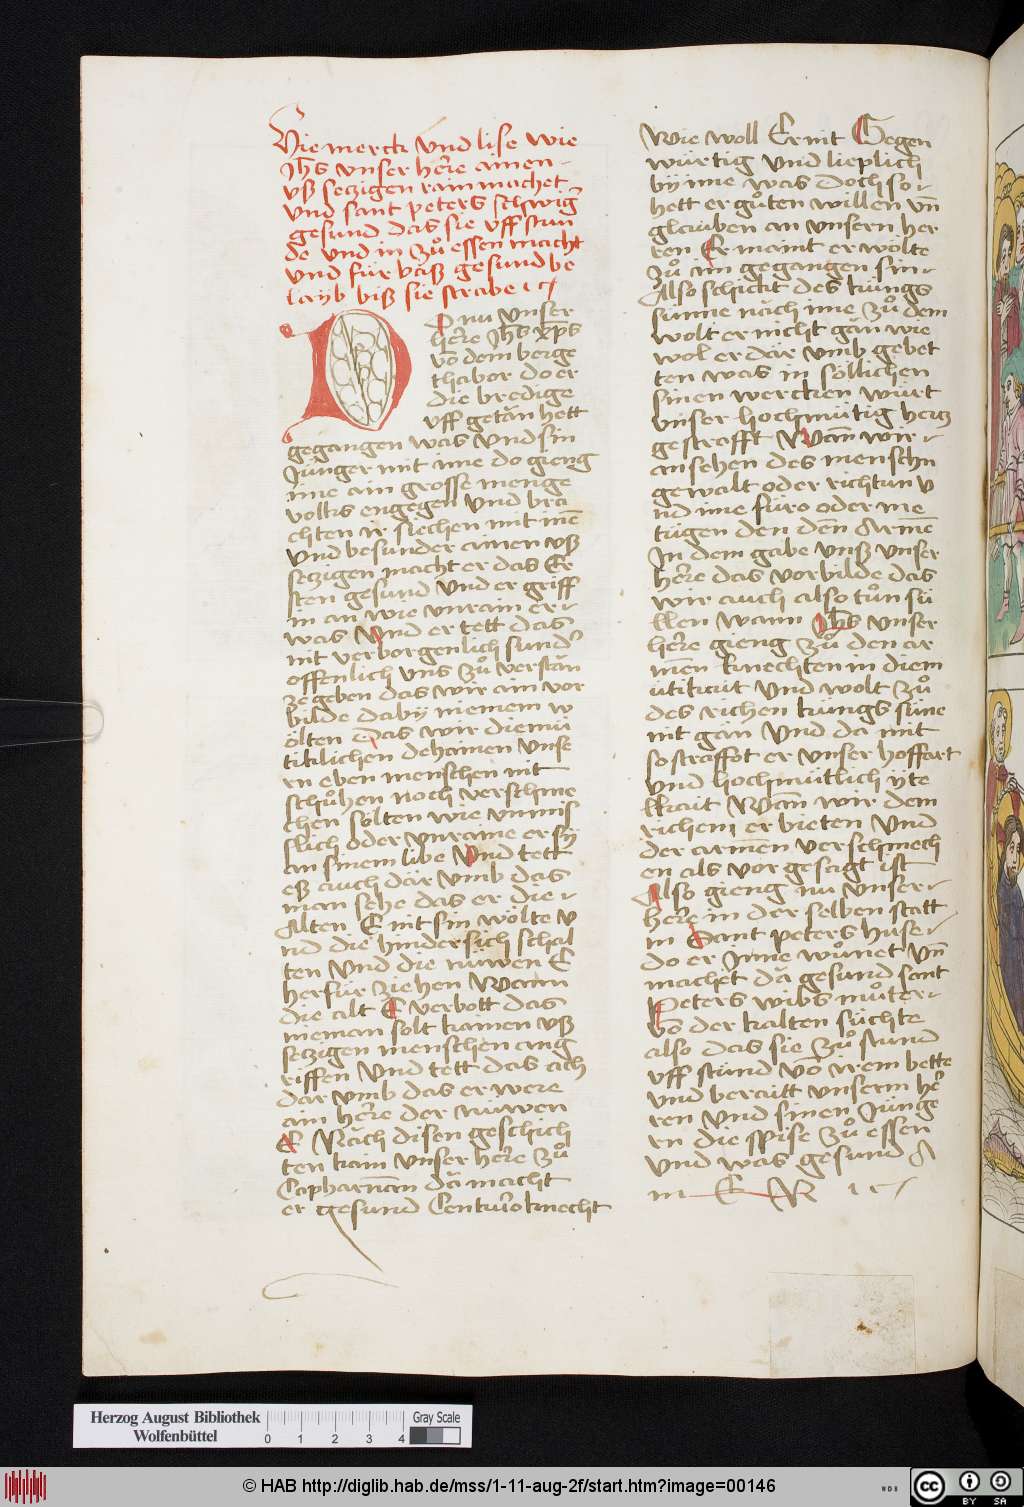 Hie merck vnd lise wie
Jhs vnser here ainen
vsß setzigen rain machet
vnd sant peters schwig̉
gesund das sie vff stun
de vnd in zů essen macht
vnd für bas gesund be
layb biß sie starbe ꝛc
Do nu vnser
here Jhs xp̄s
vō dem berge
thabor do er
die bredige
vff getăn hett
gegangen was vnd sin
Jünger mit ime do gieng
ime ain grosse menge
volks engegen vnd bra
chten ir siechen mit inē
vnd besunder ainen vß
setzigen macht er das Er
sten gesund vnd er griff
in an wie vnrain er
was vnd er tett das
nit verborgenlich sund̉
offenlich vns zů verstăn
ze geben das wir ain vor
bilde dabÿ niemem w
ölten Das wir diemü
tiklichen dehainen vnse
rn eben menschen nit
schühen noch verschme
chen sölten wie vnmis
slich oder vnraine er sÿ
an sinem libe Vnd tett
eß auch dăr vmb das
man sehe das er die
Alten E nit sin wölte v
nd die hindersich schal
ten vnd die nüwen E
herfür ziehen Wann
die alt E verbott das
nieman solt kainen vß
setzigen menschen ang
riffen vnd tett das ach
dar vmb das er were
ain here der nüwen
E Năch disen geschich
ten kam vnser here zů
Capharnām dă macht
er gesund Centurio knecht
Wie woll Er nit Gegen
würtig vnd lieplich
bÿ ime was doch so
hett er gůten willen vn̄
glauben an vnsern her
ren Er maint er wölte
zů im gegangen sin
Also schickt des küngs
sünne năch ime zů dem
wolt er nicht găn wie
wol er dăr vmb gebet
ten was in söllichen
sinen wercken würt
vnser hochmütig hertz
gestrafft Wañ wir
ansehen des menschn
gewalt oder richtun v
nd ime füro oder me
tügen den den Armē
In dem gabe vnß vnser
here das vorbilde das
wir auch also tůn sü
llen wann Jhs vnser
here gieng zů den ar
men knechten in diem
ütikait vnd wolt zů
des richen küngs süne
nit găn vnd da mit
so straffot er vnser hoffart
vnd hochmütlich ÿte
lkait Wañ wir dem
richem er bieten vnd
der armen verschmech
en als vor gesagt ist
Also gieng nu vnser
here in der selben statt
in Sant peters huse
do er Inne wůnet vn̄
machet dă gesund sant
Peters wibs můter
vō der kalten süchte
also das sie zů stund
vff stůnd vō irem bette
vnd beraitt vnserm he
ren vnd sinen Jünge
rn die spise zů essen
vnd was gesund A
m E N ꝛc
Herzog August Bibliothek
Wolfenbüttel
Gray Scale
0 1 2 3 4
© HAB http://diglib.hab.de/mss/1-11-aug-2f/start.htm?image=00146
WDB
cc
BY SA